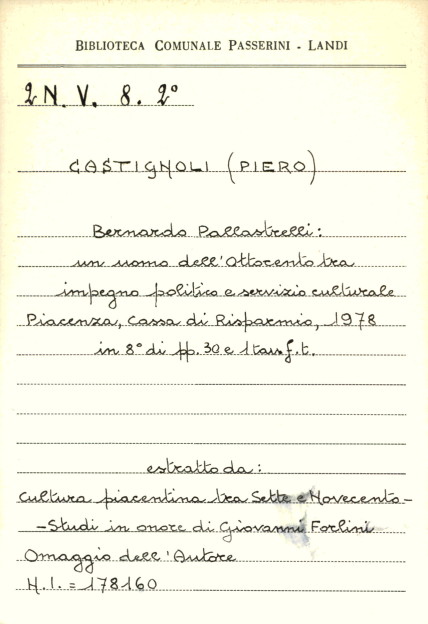 BIBLIOTECA COMUNALE PASSERINI - LANDI
2N. V. 8. 2°
CASTIGNOLI (PIERO)
Bernardo Pallastrelli:
un uomo dell'Ottocento tra
impegno politico e servizio culturale
Piacenza, Cassa di Risparmio, 1978
in 8° di pp. 30 e 1 tav. f. t.
estratto da:
Cultura piacentina tra Sette e Novecento -
- Studi in onore di Giovanni Forlini
Omaggio dell'Autore
N. I. = 178160